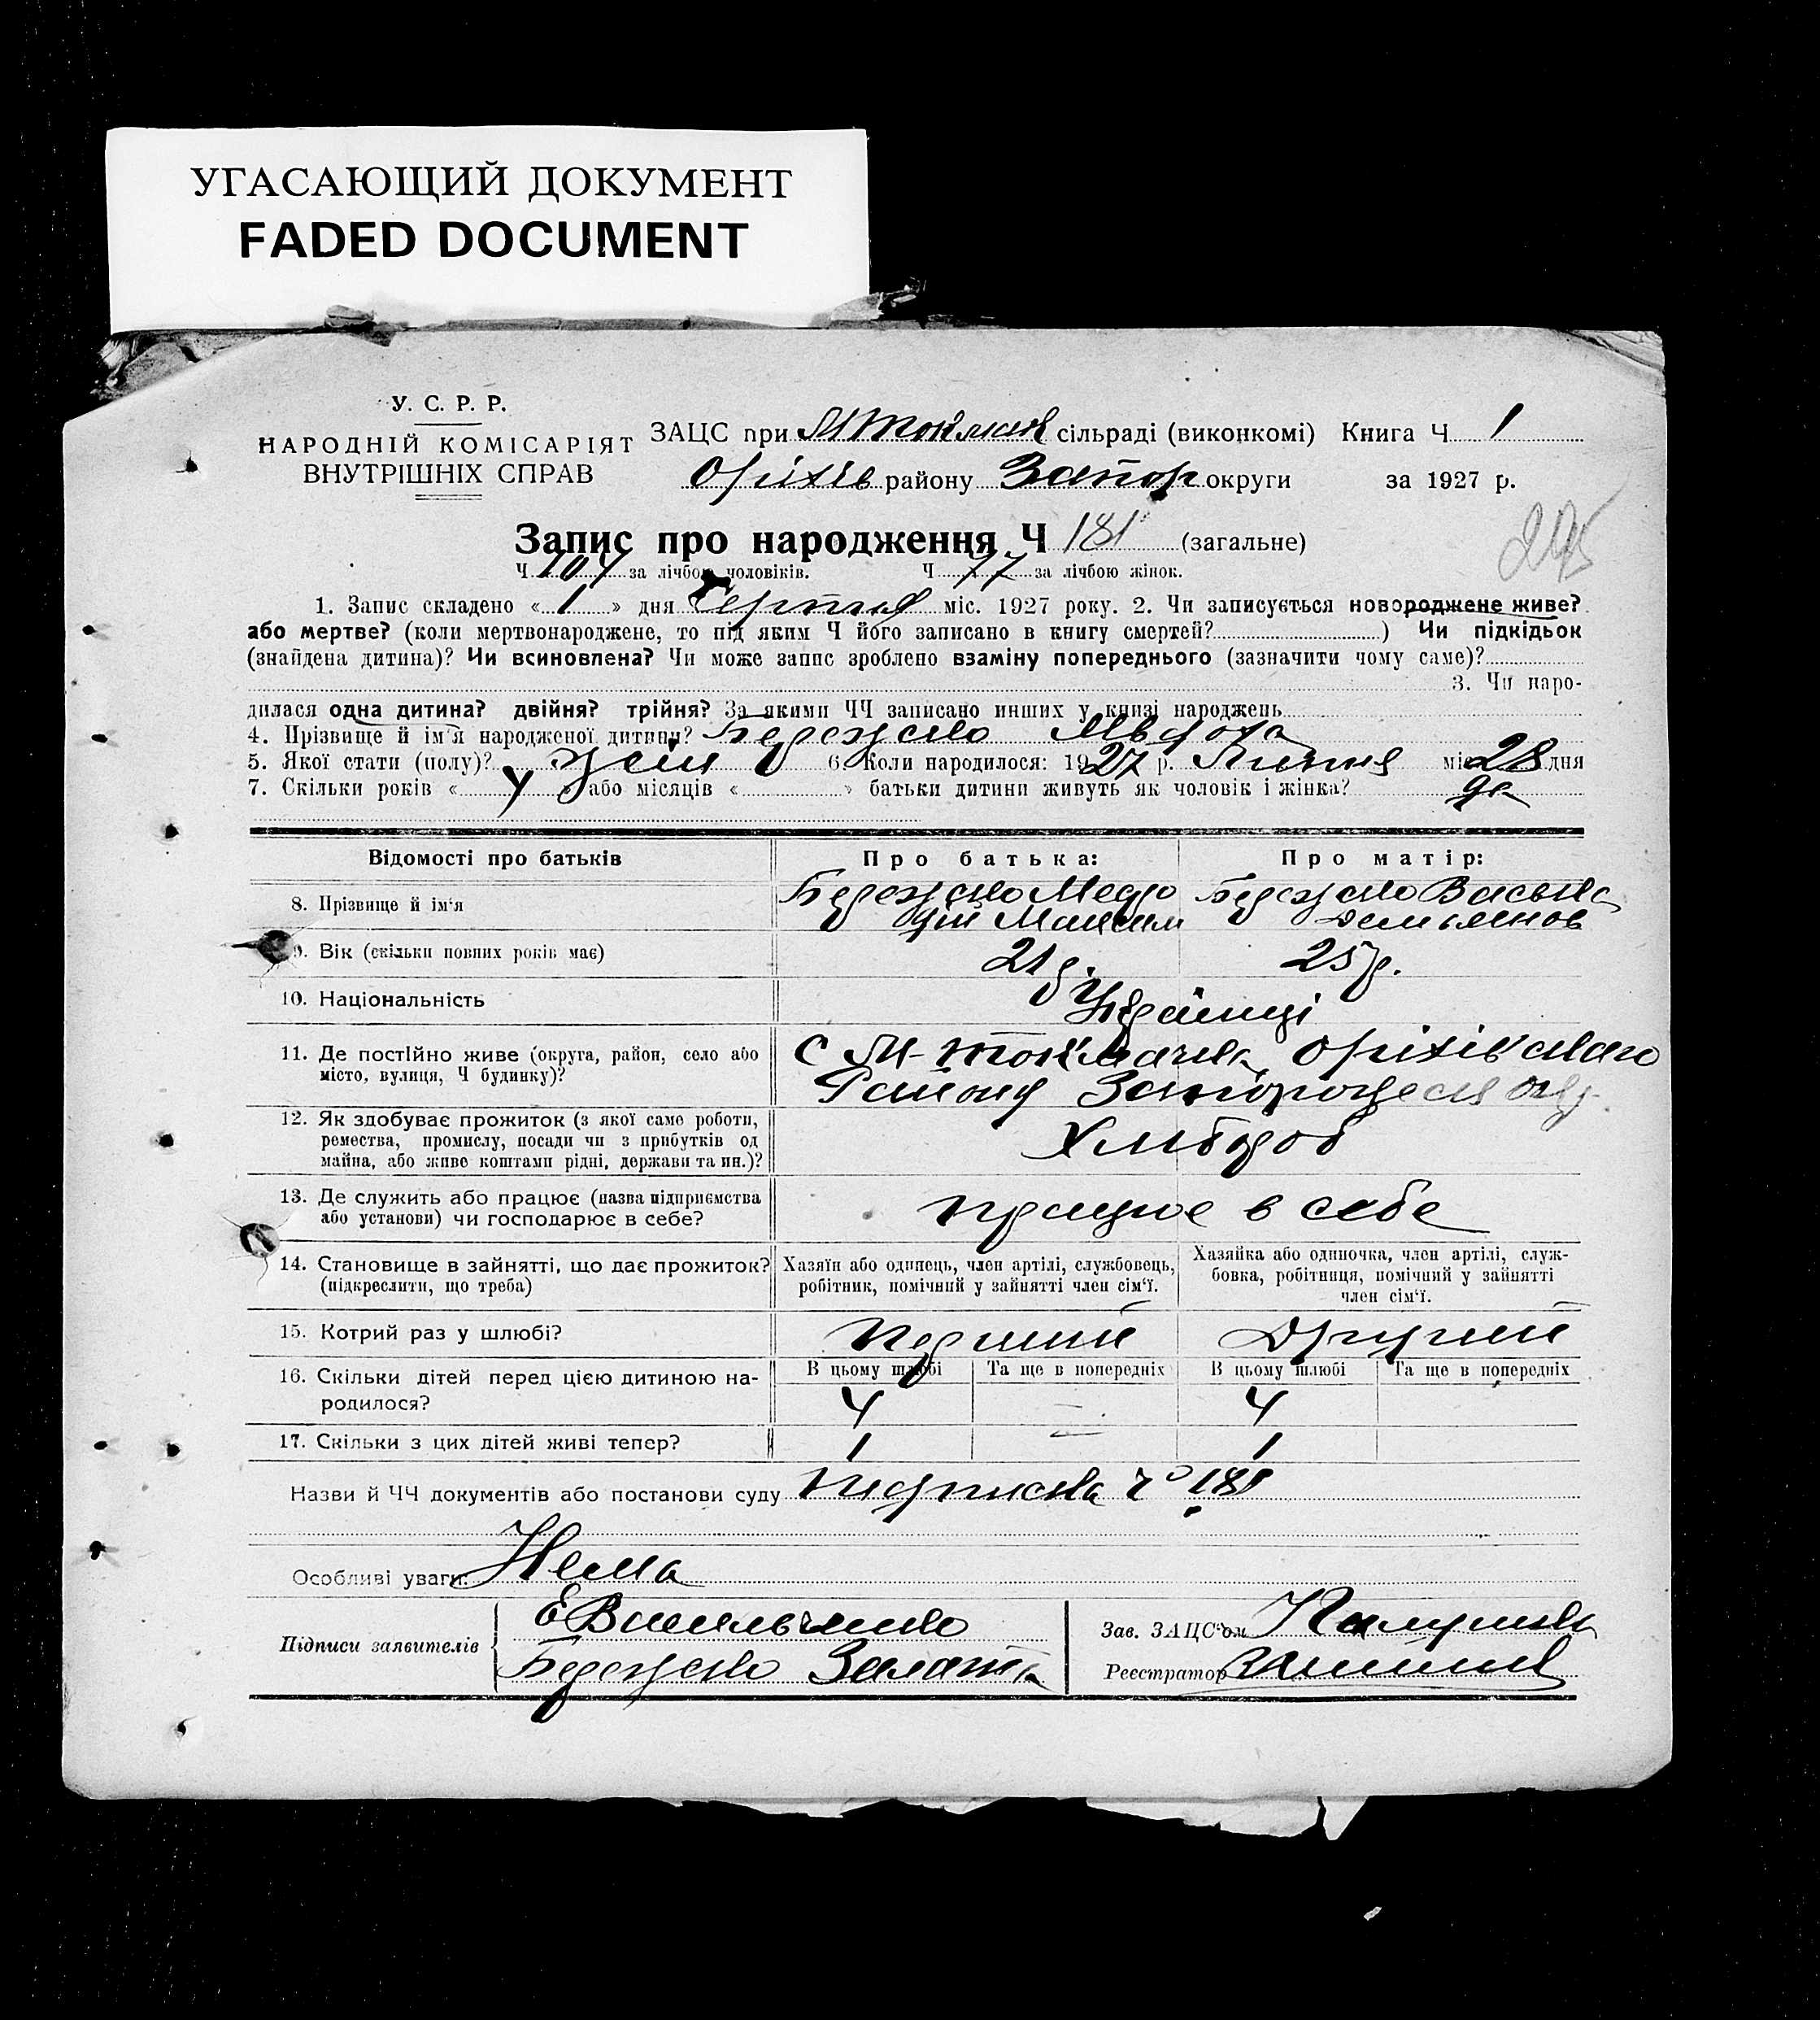 УГАСАЮЩИЙ ДОКУМЕНТ
FADED DOCUMENT
У. С. Р. Р.
НАРОДНІЙ КОМІСАРІЯТ
ВНУТРІШНІХ СПРАВ
ЗАЦС при МТокмац сільраді (виконкомі) Книга Ч 1
Оріхів району Запор округи за 1927 р.
295
Запис про народження Ч 181 (загальне)
Ч 104 за лічбою чоловіків. Ч 77 за лічбою жінок.
1. Запис складено « 1 » дня Серпня міс. 1927 року. 2. Чи записується новороджене живе?
або мертве? (коли мертвонароджене, то під яким Ч його записано в книгу смертей? ) Чи підкідьок
(знайдена дитина)? Чи всиновлена? Чи може запис зроблено взаміну попереднього (зазначити чому саме)?
3. Чи наро-
дилася одна дитина? двійня? трійня? За якими ЧЧ записано инших у книзі народжень
4. Прізвище й ім'я народженої дитини? Бережено
5. Якої стати (полу)? жін 6. Коли народилося: 1927 р. Липня міс. 28 дня
7. Скільки років « 4 » або місяців « » батьки дитини живуть як чоловік і жінка? да
Відомості про батьків Про батька: Про матір:
8. Прізвище й ім'я Бережено Бережено
Максим Демьянов
9. Вік (скільки повних років має) 21 р. 25 р.
10. Національність Українці
11. Де постійно живе (округа, район, село або С М-Токмачка, Оріхівского
місто, вулиця, Ч будинку)? Району
12. Як здобуває прожиток (з якої саме роботи, Хлібороб
ремества, промислу, посади чи з прибутків од
майна, або живе коштами рідні, держави та ин.)?
13. Де служить або працює (назва підприємства працює в себе
або установи) чи господарює в себе?
14. Становище в зайнятті, що дає прожиток? Хазяїн або одинець, член артілі, службовець, Хазяйка або одиночка, член артілі, служ-
(підкреслити, що треба) робітник, помічний у зайнятті член сім'ї. бовка, робітниця, помічний у зайнятті
член сім'ї.
15. Котрий раз у шлюбі? Перший Другий
В цьому шлюбі Та ще в попередніх В цьому шлюбі Та ще в попередніх
16. Скільки дітей перед цією дитиною на-
родилося? 4 — 4
17. Скільки з цих дітей живі тепер? 1 — 1
Назви й ЧЧ документів або постанови суду Підписка ч 181
Особливі уваги: Нема
Підписи заявителів Е Васильченко Зав. ЗАЦС'ом
Бережено Реєстратор